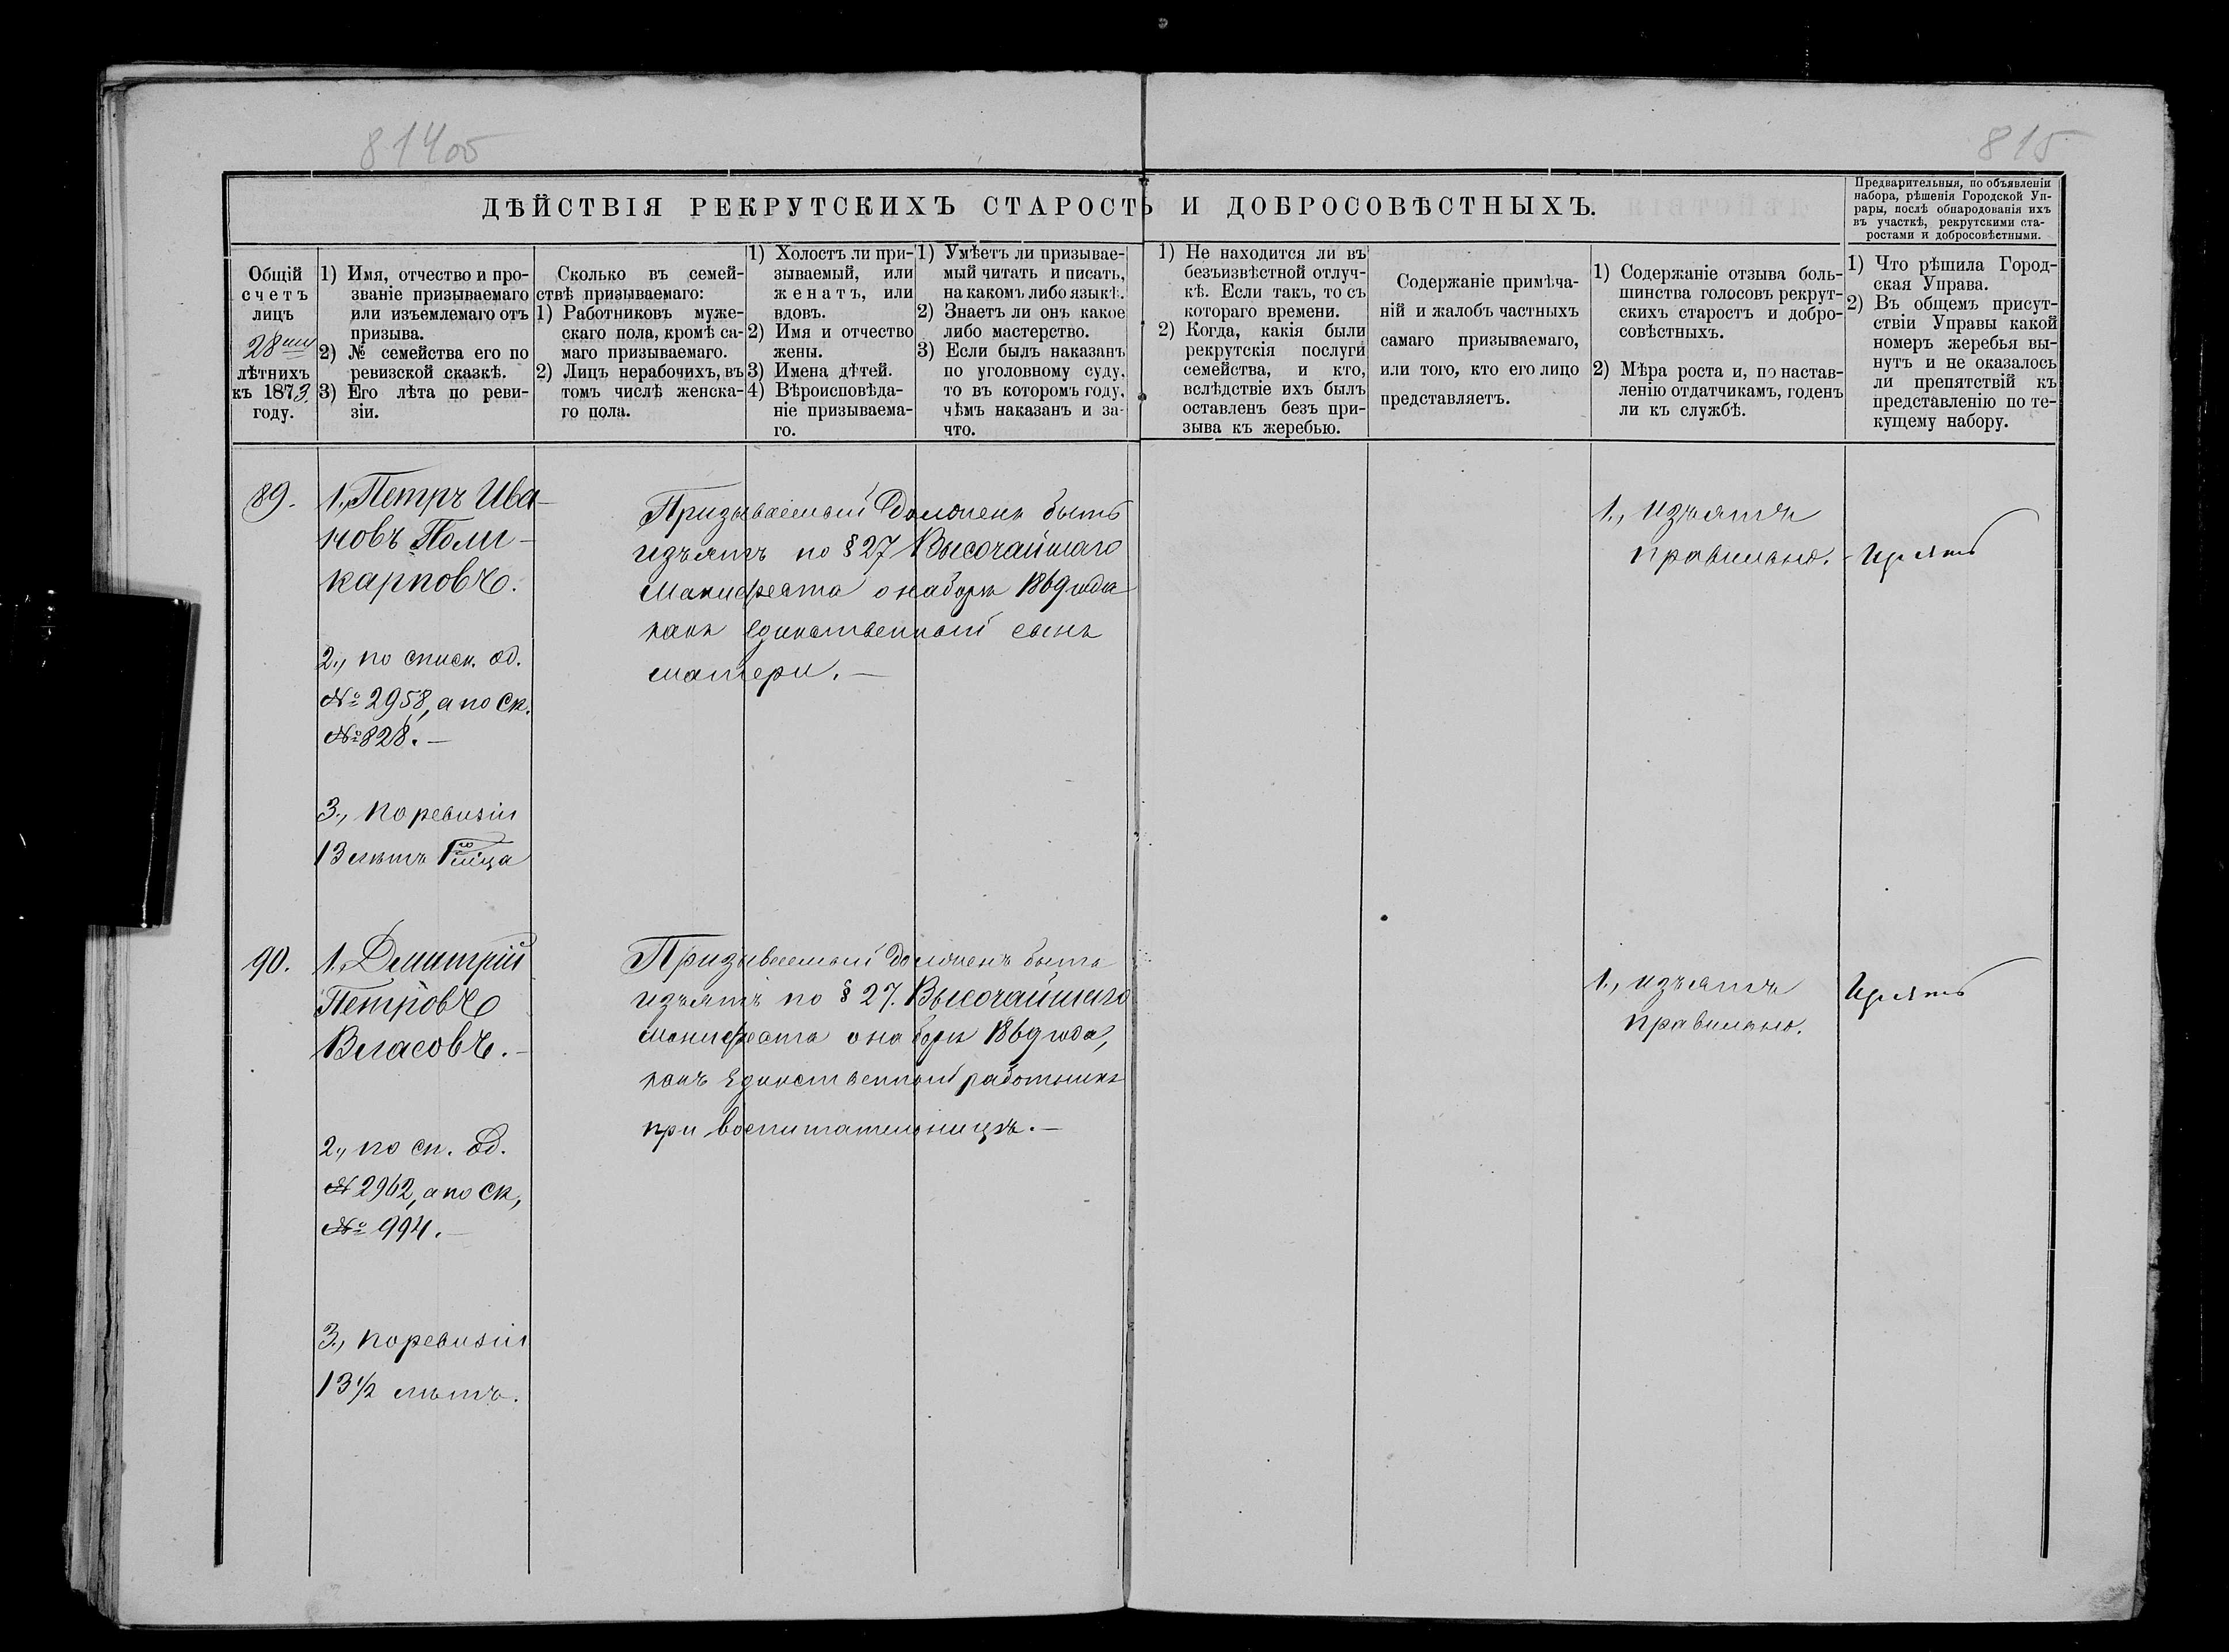 814об
815
ДѢЙСТВІЯ РЕКРУТСКИХЪ СТАРОСТЪ И ДОБРОСОВѢСТНЫХЪ.
Предварительныя, по объявленіи
набора, рѣшенія Городской Уп-
рары, послѣ обнародованія ихъ
въ участкѣ, рекрутскими ста-
ростами и добросовѣстными.
Общій
счетъ
лицъ
28ми
лѣтнихъ
къ 1873
году.
1) Имя, отчество и про-
званіе призываемаго
или изъемлемаго отъ
призыва.
2) № семейства его по
ревизской сказкѣ.
3) Его лѣта по реви-
зіи.
Сколько въ семей-
ствѣ призываемаго:
1) Работниковъ муже-
скаго пола, кромѣ са-
маго призываемаго.
2) Лицъ нерабочихъ, въ
томъ числѣ женска-
го пола.
1) Холостъ ли при-
зываемый, или
женатъ, или
вдовъ.
2) Имя и отчество
жены.
3) Имена дѣтей.
4) Вѣроисповѣда-
ніе призываема-
го.
1) Умѣетъ ли призывае-
мый читать и писать,
на какомъ либо языкѣ.
2) Знаетъ ли онъ какое
либо мастерство.
3) Если былъ наказанъ
по уголовному суду,
то въ которомъ году,
чѣмъ наказанъ и за-
что.
1) Не находится ли въ
безъизвѣстной отлуч-
кѣ. Если такъ, то съ
котораго времени.
2) Когда, какія были
рекрутскія послуги
семейства, и кто,
вслѣдствіе ихъ былъ
оставленъ безъ при-
зыва къ жеребью.
Содержаніе примѣча-
ній и жалобъ частныхъ
самаго призываемаго,
или того, кто его лицо
представляетъ.
1) Содержаніе отзыва боль-
шинства голосовъ рекрут-
скихъ старостъ и добро-
совѣстныхъ.
2) Мѣра роста и, по настав-
ленію отдатчикамъ, годенъ
ли къ службѣ.
1) Что рѣшила Город-
ская Управа.
2) Въ общемъ присут-
ствіи Управы какой
номеръ жеребья вы-
нутъ и не оказалось
ли препятствій къ
представленію по те-
кущему набору.
89.
1., Петръ Ива-
новъ Поли-
карповъ.
2., по списк. од.
№ 2958, а по ск.
№ 828. —
3., по ревизіи
13 лѣтъ 1го м̃ца
Призываемый долженъ быть
изъятъ по § 27 Высочайшаго
Манифеста о наборѣ 1869 года
какъ единственный сынъ
матери. —
1., изъятъ
правильно.
Изъять
90.
1., Дмитрій
Петровъ
Власовъ. —
2., по сп. од.
№ 2962, а по ск,
№ 994. —
3., по ревизіи
13 1/2 лѣтъ.
Призываемый долженъ быть
изъятъ по § 27. Высочайшаго
Манифеста о наборѣ 1869 года,
какъ единственный работникъ
при воспитательницѣ. —
1., изъятъ
правильно.
Изъять